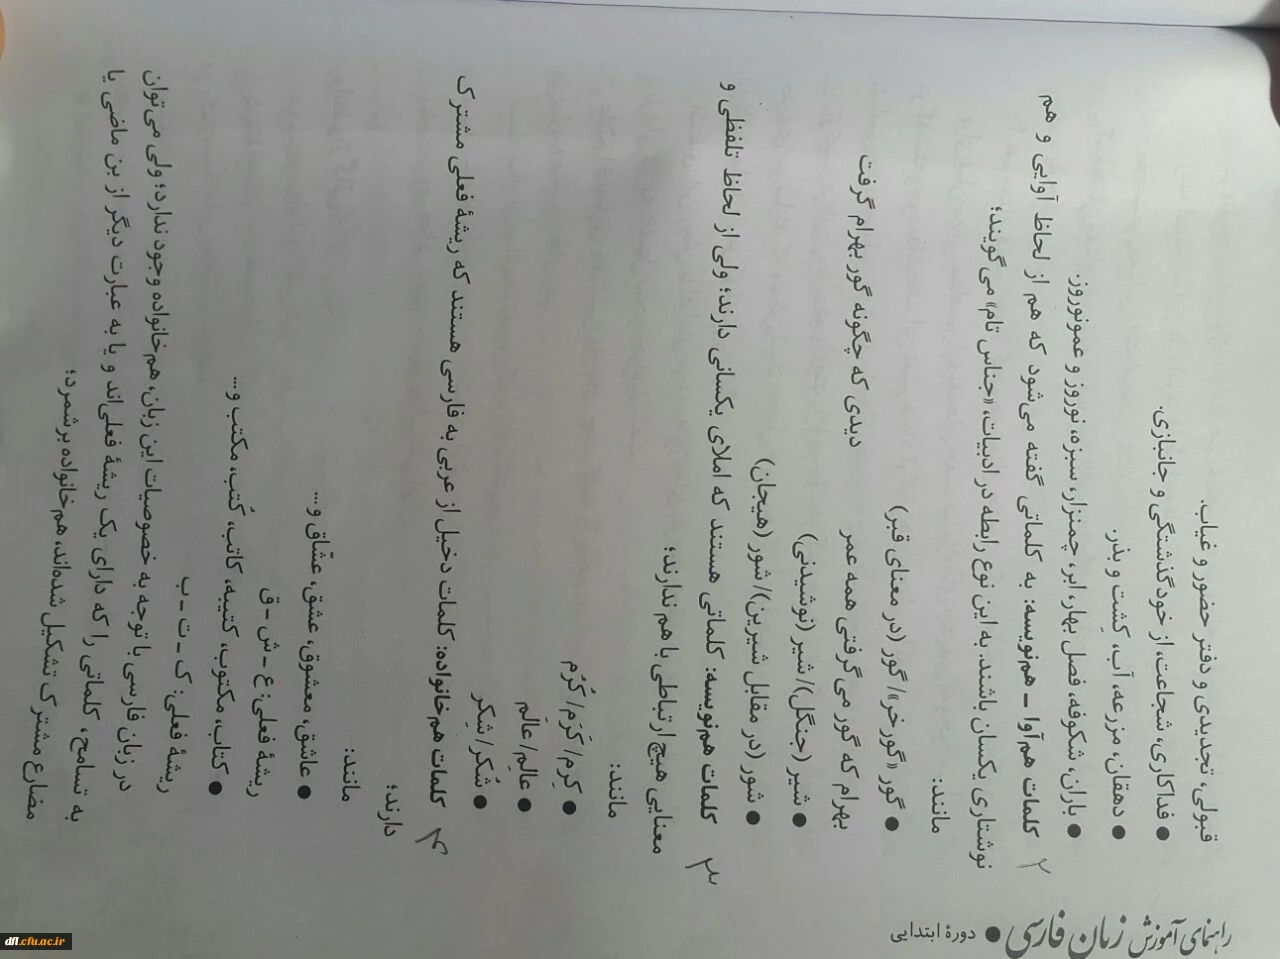 راهنمای آموزش زبان فارسی ● دورهٔ ابتدایی
قبولی، تجدیدی و دفتر حضور و غیاب.
● فداکاری، شجاعت، از خودگذشتگی و جانبازی.
● دهقان، مزرعه، آب، کِشت و بذر.
● باران، شکوفه، فصل بهار، ابر، چمنزار، سبزه، نوروز و عمونوروز.
۲ کلمات هم‌آوا ـ هم‌نویسه: به کلماتی گفته می‌شود که هم از لحاظ آوایی و هم
نوشتاری یکسان باشند. به این نوع رابطه در ادبیات، «جناس تام» می‌گویند؛
مانند:
● گور «گورخر»/ گور (در معنای قبر)
بهرام که گور می‌گرفتی همه عمر دیدی که چگونه گور بهرام گرفت
● شیر (جنگل)/ شیر (نوشیدنی)
● شور (در مقابل شیرین)/ شور (هیجان)
۳ کلمات هم‌نویسه: کلماتی هستند که املای یکسانی دارند؛ ولی از لحاظ تلفظی و
معنایی هیچ ارتباطی با هم ندارند؛
مانند:
● کِرِم/ کَرَم/ کُرُم
● عالِم/ عالَم
● شُکر/ شِکر
۴ کلمات هم‌خانواده: کلمات دخیل از عربی به فارسی هستند که ریشهٔ فعلی مشترک
دارند؛
مانند:
● عاشق، معشوق، عشق، عشّاق و...
ریشهٔ فعلی: ع ـ ش ـ ق
● کتاب، مکتوب، کتیبه، کاتب، کُتب، مکتب و...
ریشهٔ فعلی: ک ـ ت ـ ب
در زبان فارسی با توجه به خصوصیات این زبان، هم‌خانواده وجود ندارد؛ ولی می‌توان
به تسامح، کلماتی را که دارای یک ریشهٔ فعلی‌اند و یا به عبارت دیگر از بن ماضی یا
مضارع مشترک تشکیل شده‌اند، هم‌خانواده برشمرد؛
dfl.cfu.ac.ir